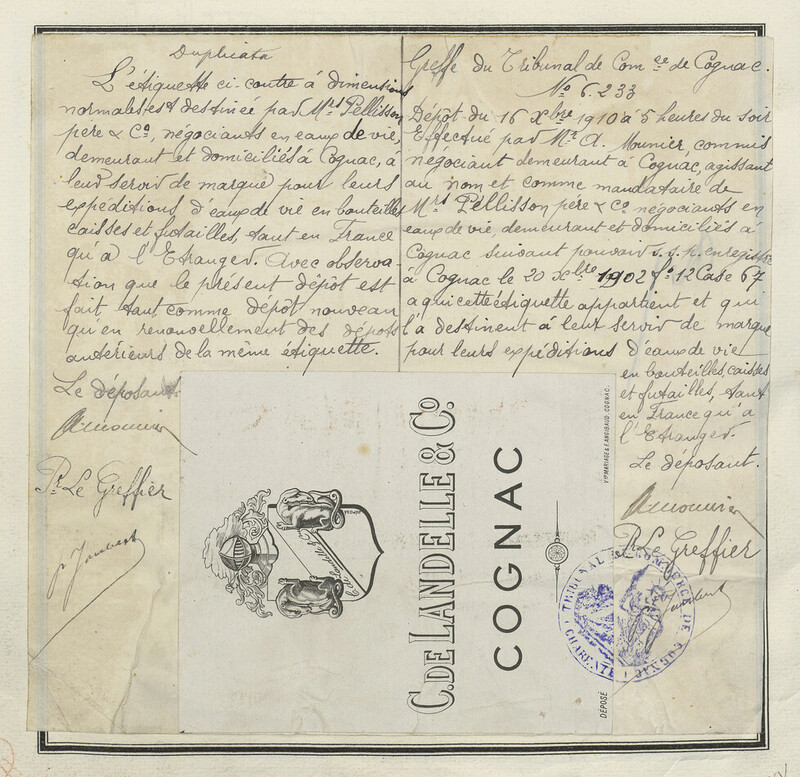 Duplicata
L'étiquette ci-contre à dimensions
normales est destinée par Mrs Pellisson
père & Co, négociants en eaux de vie,
demeurant et domiciliés à Cognac, à
leur servir de marque pour leurs
expéditions d'eaux de vie en bouteilles
caisses et futailles, tant en France
qu'à l'Etranger. Avec observa-
tion que le présent dépôt est
fait, tant comme dépôt nouveau
qu'en renouvellement des dépôts
antérieurs de la même étiquette.
Le déposant
AMounier
Pr Le Greffier
Greffe du Tribunal de Com ce de Cognac.
No 6.233
Dépôt du 16 Xbre 1910 à 5 heures du soir
Effectué par Mr A. Mounier, commis
négociant demeurant à Cognac, agissant
au nom et comme mandataire de
Mrs Pellisson père & Co négociants en
eaux de vie, demeurant et domiciliés à
Cognac suivant pouvoir s.s.p. enregistré
à Cognac le 20 Xbre 1902 fo 12 Case 67
à qui cette étiquette appartient et qui
l'a destinent à leur servir de marque
pour leurs expéditions d'eaux de vie
en bouteilles, caisses
et futailles, tant
en France qu'à
l'Etranger.
Le déposant.
AMounier
Pr Le Greffier
C. DE LANDELLE & Co.
COGNAC
DÉPOSÉ
VVE MARIAGE & F. ANGIBAUD. COGNAC.
TRIBUNAL DE COMMERCE DE COGNAC
CHARENTE